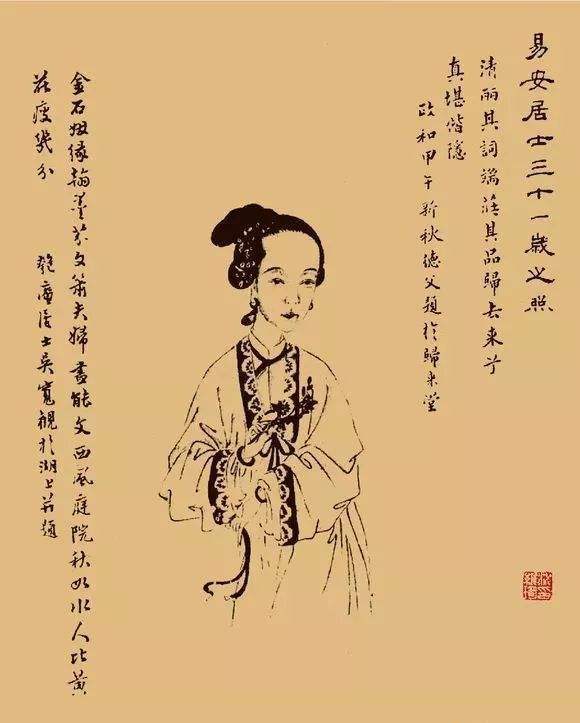 易安居士三十一歲之照
清丽其詞端莊其品歸去来兮
真堪偕隱
政和甲午新秋德父題於歸来堂
金石姻緣翰墨芬文簫夫婦盡能文西風庭院秋如水人比黃
花瘦幾分
匏庵居士吳寬觀於湖上并題